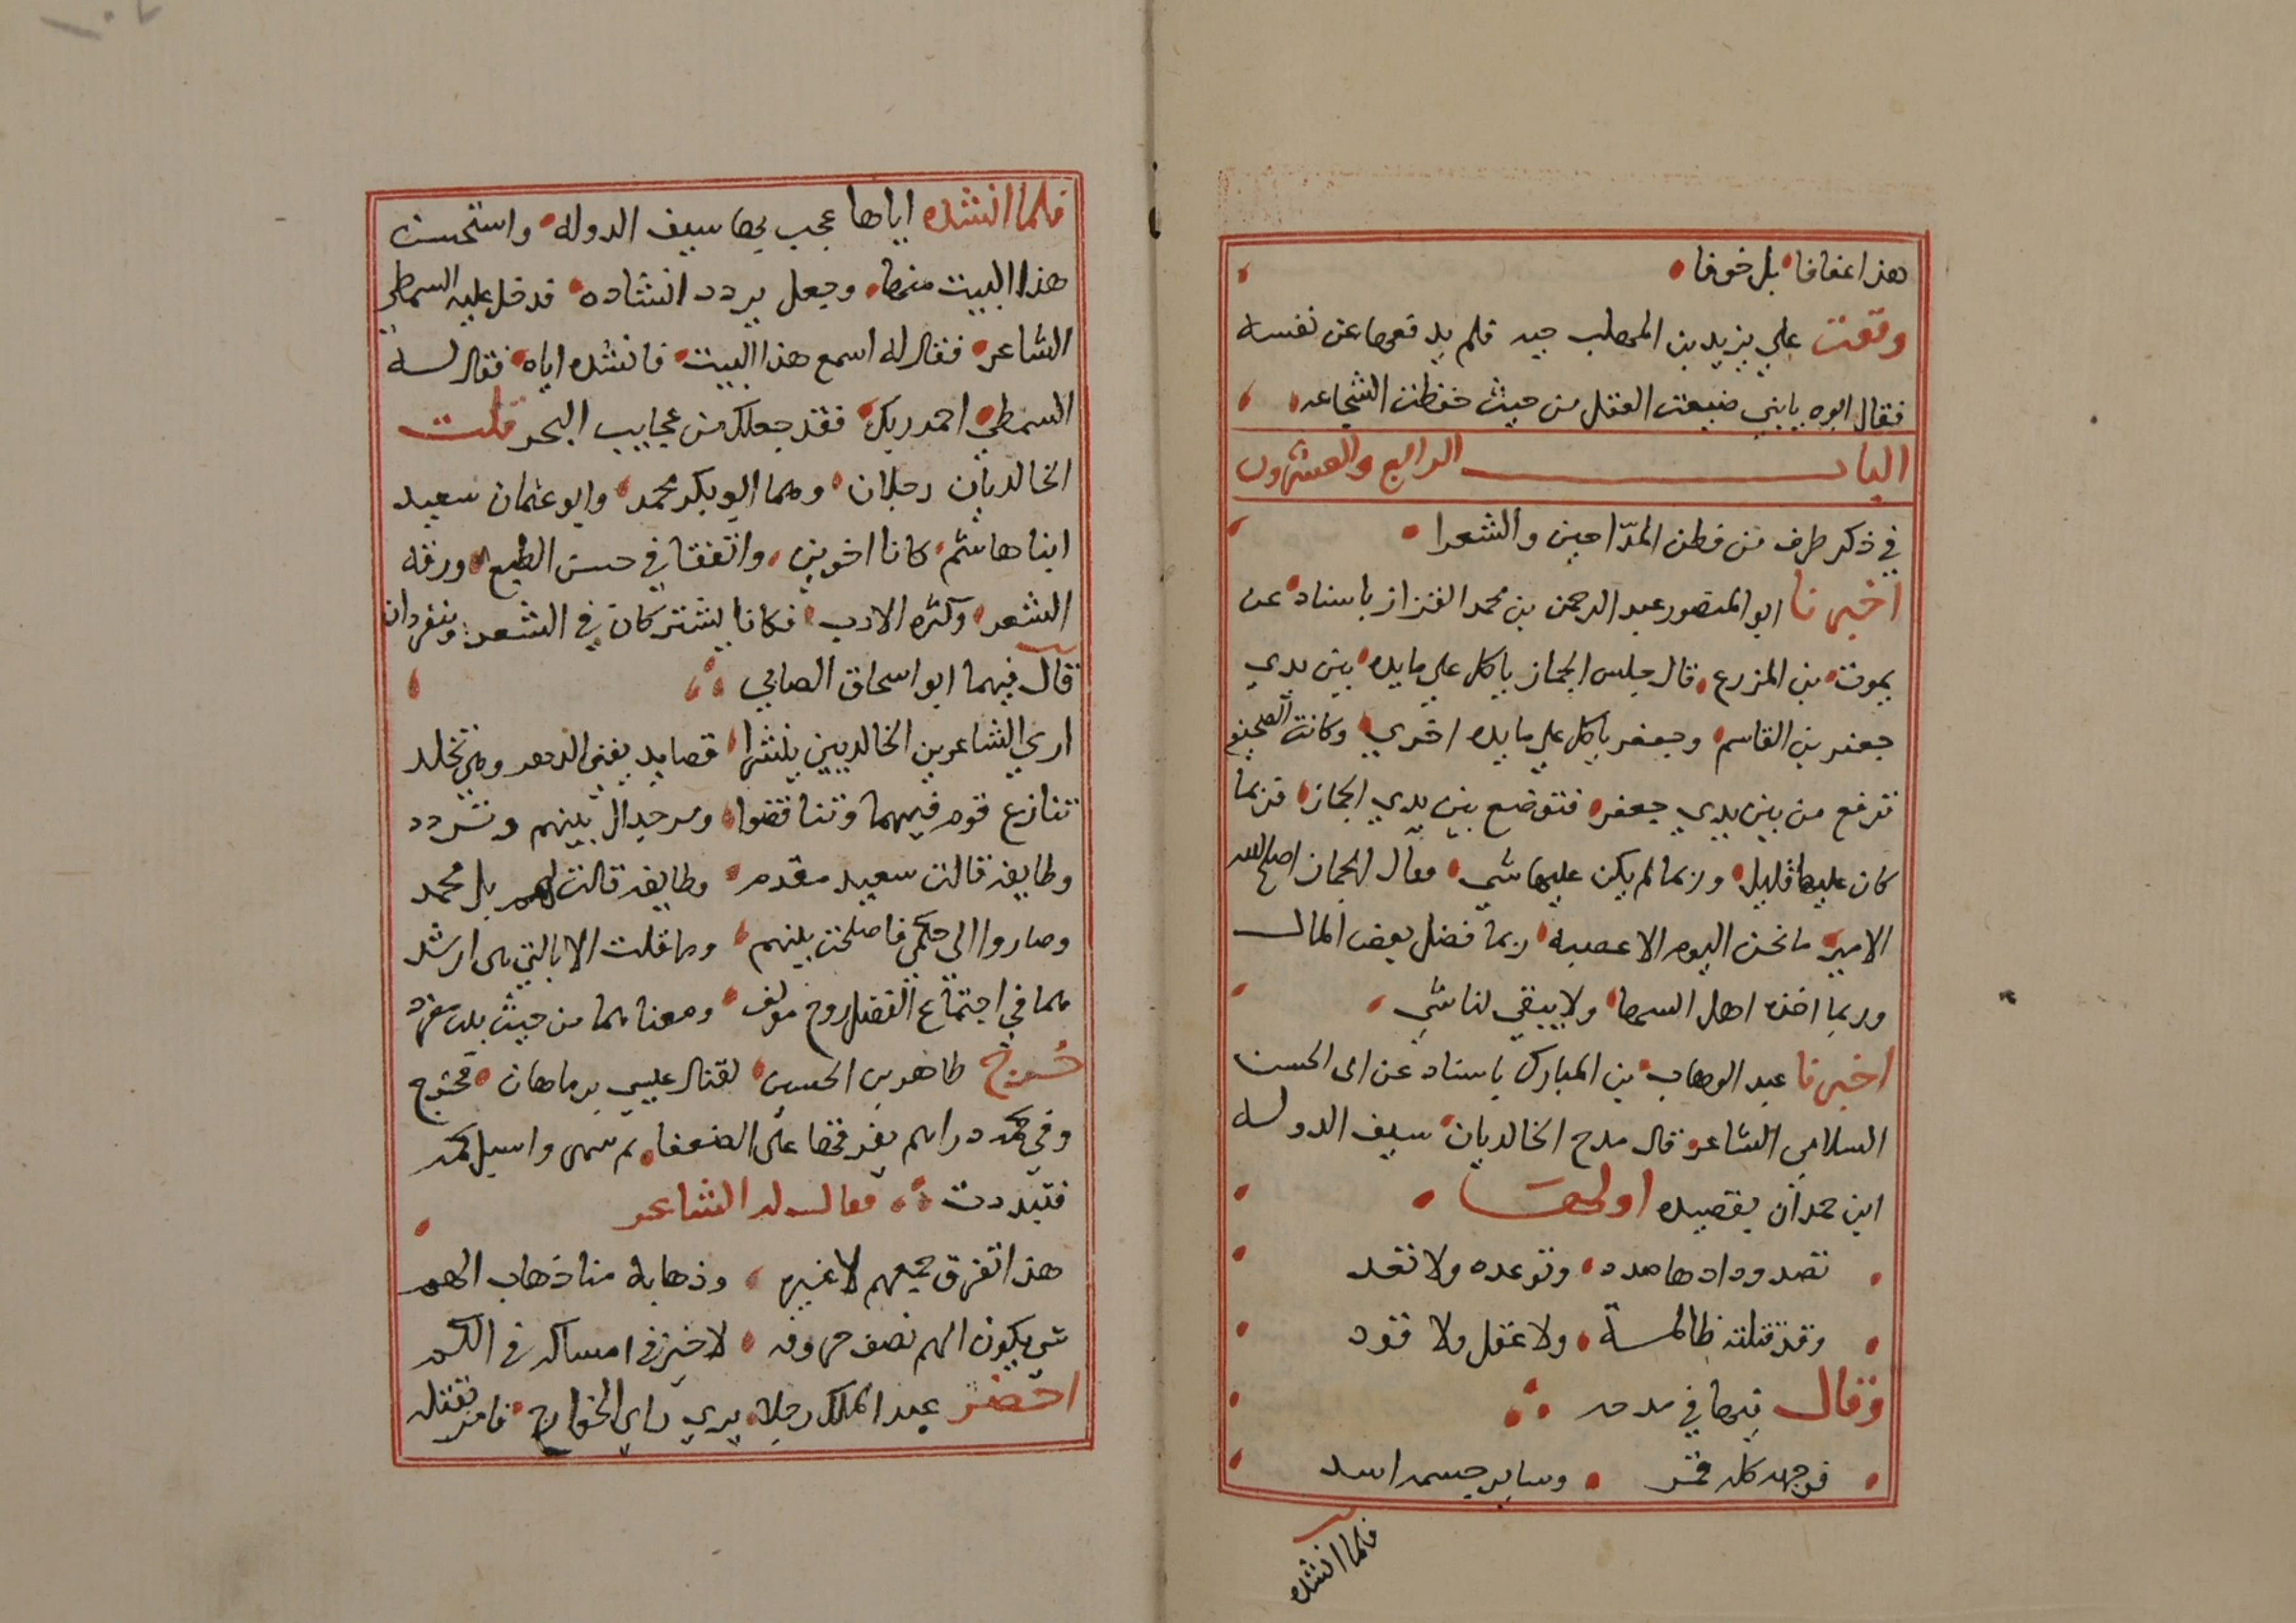 هذا عفافا بل خوفا
وقعت علي يزيد بن المهلب حيه فلم يدفعها عن نفسه
فقال ابوه يا بني ضيعت العقل من حيث حفظت الشجاعه
الباب الرابع والعشرون
في ذكر طرف من فطن المدّاحين والشعرا
اخبرنا ابو المنصور عبد الرحمن بن محمد القزاز باسناده عن
يموت بن المزرع قال جلس الجماز ياكل علي مايده بين يدي
جعفر بن القاسم وجعفر ياكل علي مايده اخري وكانت الصحفه
ترفع من بين يدي جعفر فتوضع بين يدي الجماز فربما
كان عليها قليل وربما لم يكن عليها شي فقال الجماز اصلح الله
الامير ما نحن اليوم الا عصبه ربما فضل بعض المال
وربما اخذه اهل السهما ولا يبقي لنا شي
اخبرنا عبد الوهاب بن المبارك باسناد عن ابي الحسن
السلامي الشاعر قال مدح الخالديان سيف الدوله
ابن حمدان بقصيده اولها
تصد ودادها صدد وتوعده ولا تعد
وقد قتلته ظالمة ولا عقل ولا قود
وقال فيها في مدحه
فوجهه كله قمر وساير جسمه اسد
فلما انشده
فلما انشده اياها عجب بها سيف الدوله واستحسن
هذا البيت منها وجعل يردد انشاده فدخل عليه السمطي
الشاعر فقال له اسمع هذا البيت فانشده اياه فقال له
السمطي احمد ربك فقد جعلك من عجايب البحر قلت
الخالديان رجلان وهما ابو بكر محمد وابو عثمان سعيد
ابنا هاشم كانا اخوين واتفقا في حسن الطبع ورقه
الشعر وكثره الادب فكانا يشتركان في الشعر وينفردان
قال فيهما ابو اسحاق الصابي
اري الشاعرين الخالديين ينشرا قصايد يفني الدهر وهي تخلد
تنازع قوم فيهما وتناقضوا ومر جدال بينهم وتردد
وطايفه قالت سعيد مقدم وطايفه قالت لهم بل محمد
وصاروا الي حكمي فاصلحت بينهم وما قلت الا بالتي هي ارشد
هما في اجتماع الفضل روح مولف ومعناهما من حيث بلت مفرد
خرج طاهر بن الحسين لقتال عيسي بن ماهان فخرج
وفي كمه دراهم يفرقها علي الضعفا ثم سهي واسبل كمه
فتبددت فقال له الشاعر
هذا تفرق جمعهم لا غيره وذهابه منا ذهاب الهم
شي يكون الهم نصف حروفه لا خير في امساكه في الكم
احضر عبد الملك رجلا يري راي الخوارج فامر بقتله